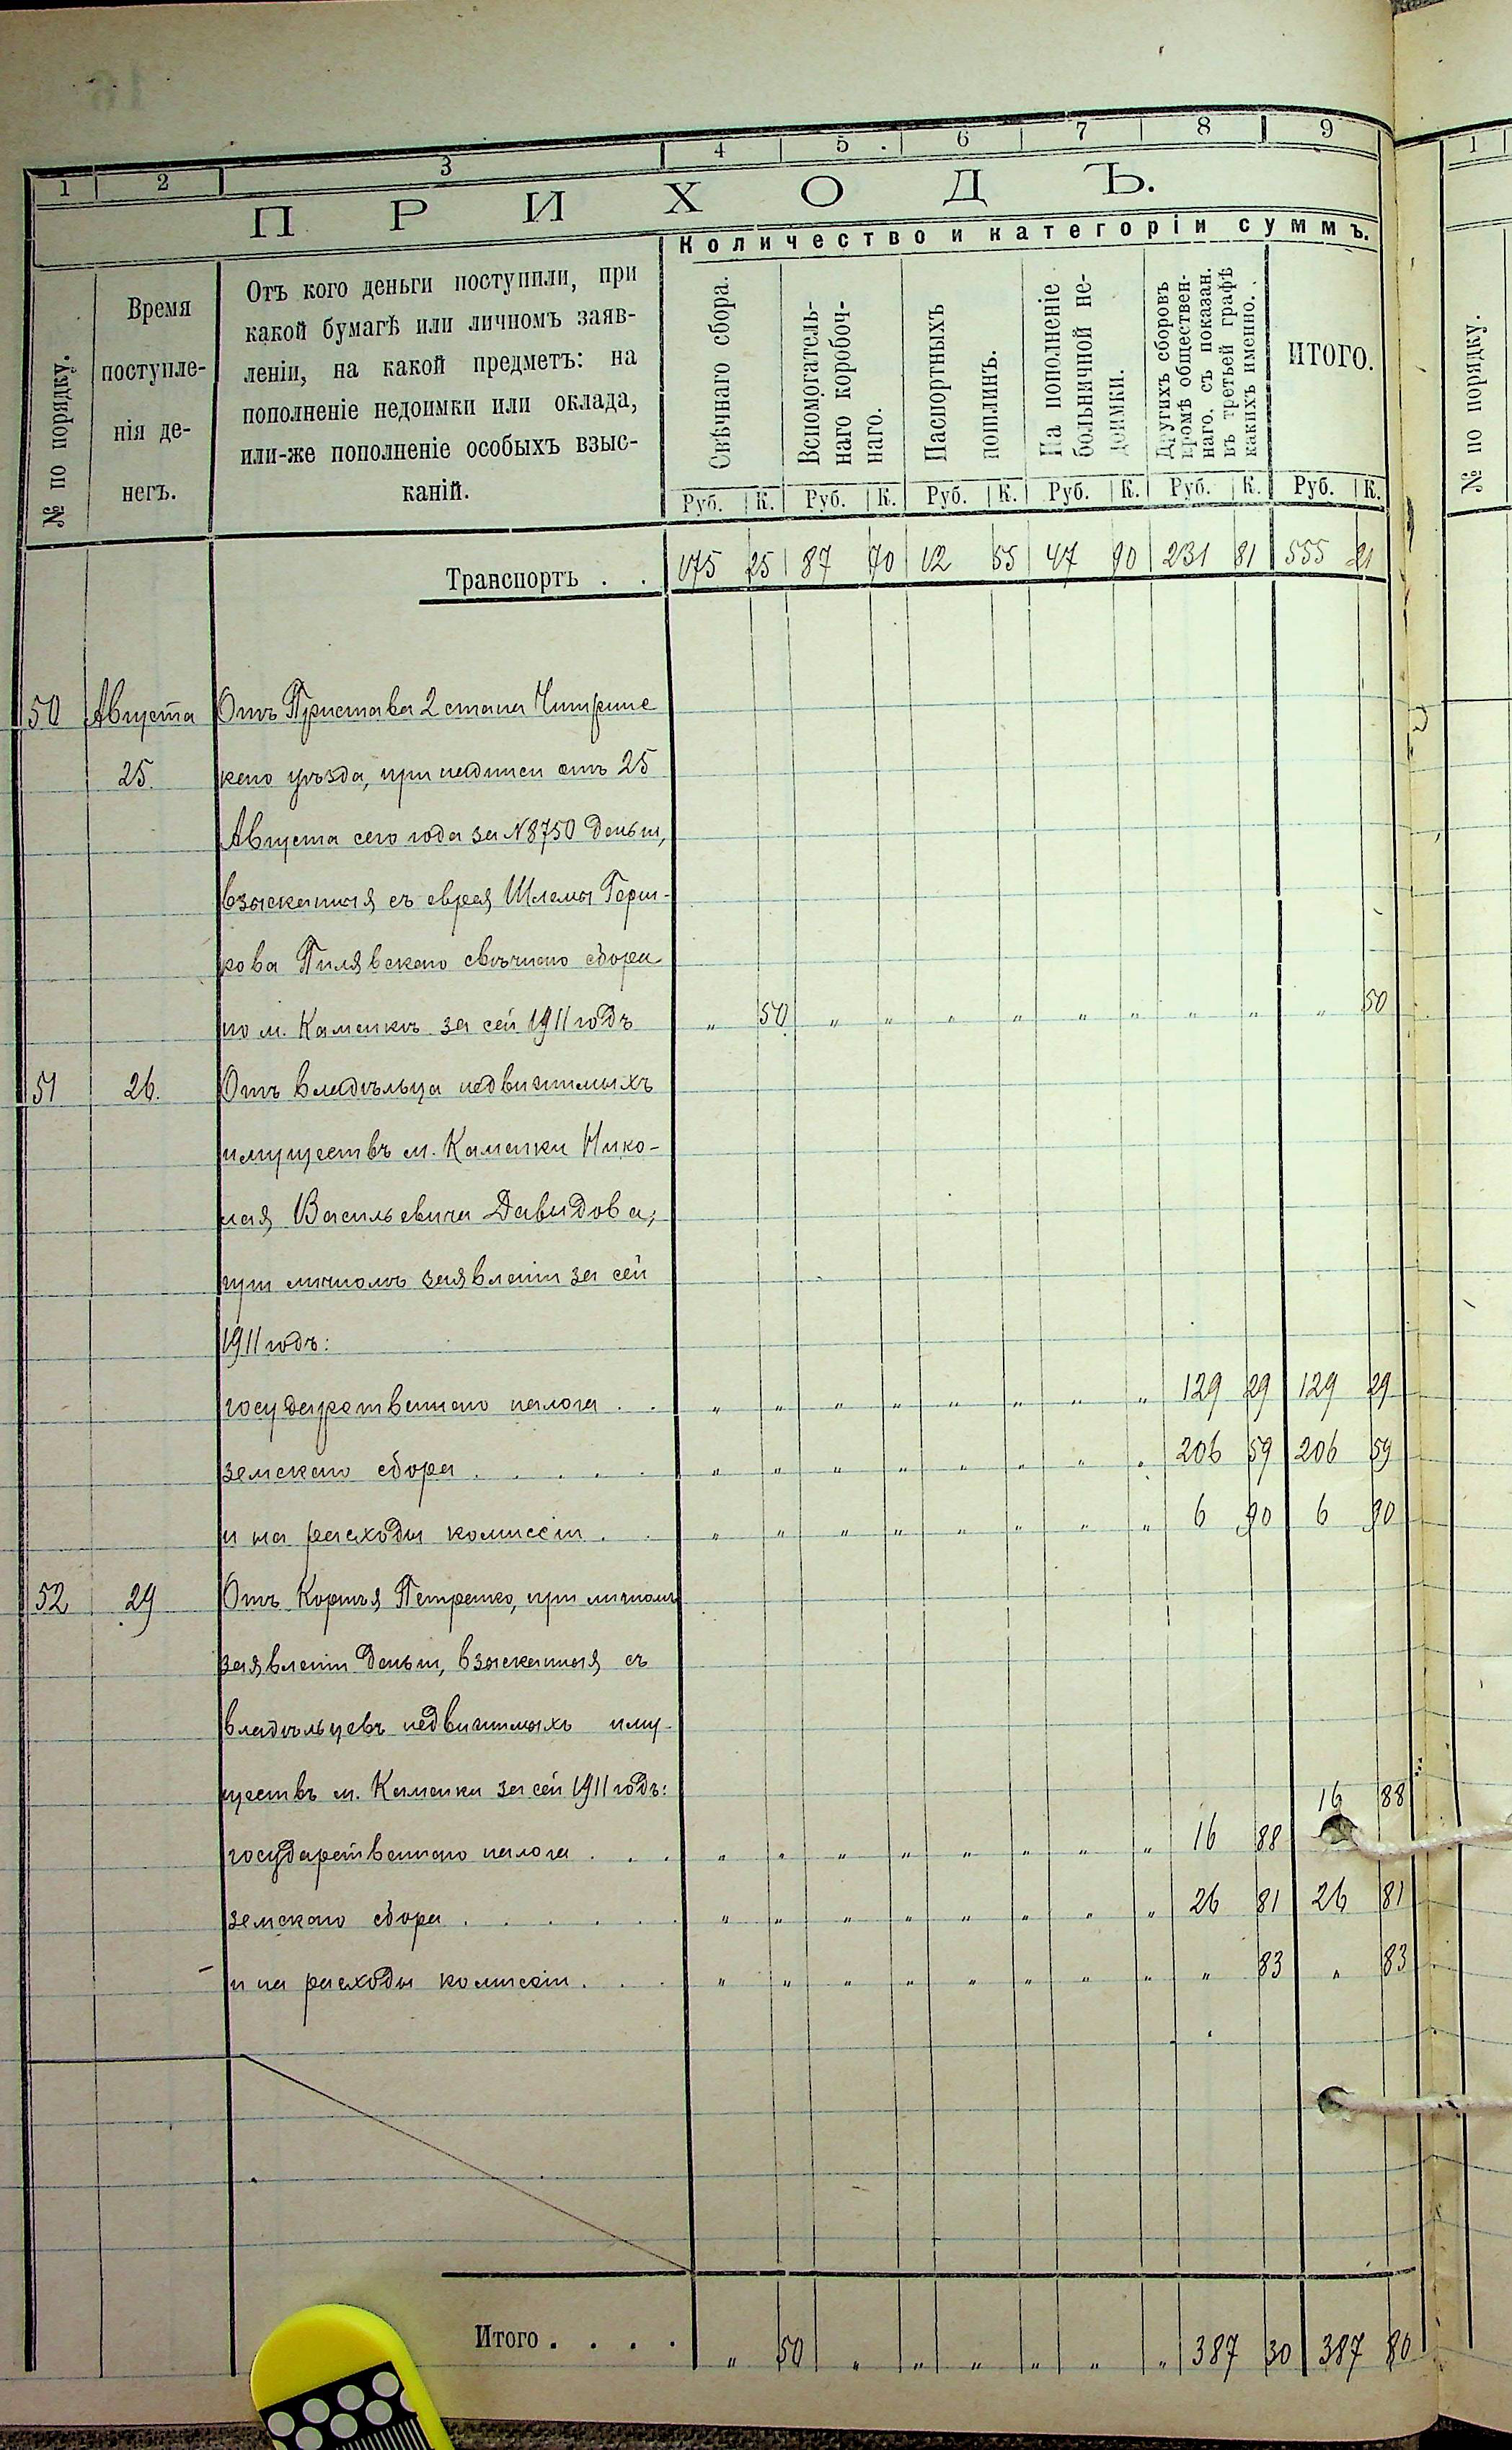 1 2 3 4 5 6 7 8 9
ПРИХОДЪ.
Количество и категоріи суммъ.
№ по порядку.
Время
поступле-
нія де-
негъ.
Отъ кого деньги поступили, при
какой бумагѣ или личномъ заяв-
леніи, на какой предметъ: на
пополненіе недоимки или оклада,
или-же пополненіе особыхъ взыс-
каній.
Свѣчнаго сбора.
Вспомогатель-
наго коробоч-
наго.
Паспортныхъ
пошлинъ.
На пополненіе
больничной не-
доимки.
Другихъ сборовъ
кромѣ обществен-
наго, съ показан.
въ третьей графѣ
какихъ именно.
ИТОГО.
Руб. К. Руб. К. Руб. К. Руб. К. Руб. К. Руб. К.
Транспортъ . . 175 25 87 70 12 55 47 90 231 81 555 21
50 Августа Отъ Пристава 2 стана Чигринс
25. каго уѣзда, при надписи отъ 25
Августа сего года за № 8750 деньги,
взысканныя съ еврея Шлемы Герш-
кова Пилявскаго свѣчнаго сбора
по м. Каменкѣ за сей 1911 годъ „ 50 „ „ „ „ „ „ „ „ „ 50
51 26. Отъ владѣльца недвижимыхъ
имуществъ м. Каменки Нико-
лая Васильевича Давидова,
при личномъ заявленіи за сей
1911 годъ:
государственнаго налога . . „ „ „ „ „ „ „ „ 129 29 129 29
земскаго сбора . . . . . „ „ „ „ „ „ „ „ 206 59 206 59
и на расходы комиссіи . . „ „ „ „ „ „ „ „ 6 90 6 90
52 29 Отъ Корнѣя Петренко, при личномъ
заявленіи деньги, взысканныя съ
владѣльцевъ недвижимыхъ иму-
ществъ м. Каменки за сей 1911 годъ:
государственнаго налога . . . „ „ „ „ „ „ „ „ 16 88 16 88
земскаго сбора . . . . . . „ „ „ „ „ „ „ „ 26 81 26 81
и на расходы комиссіи . . . „ „ „ „ „ „ „ „ „ 83 „ 83
Итого . . . . „ 50 „ „ „ „ „ „ 387 30 387 80
1
№ по порядку.